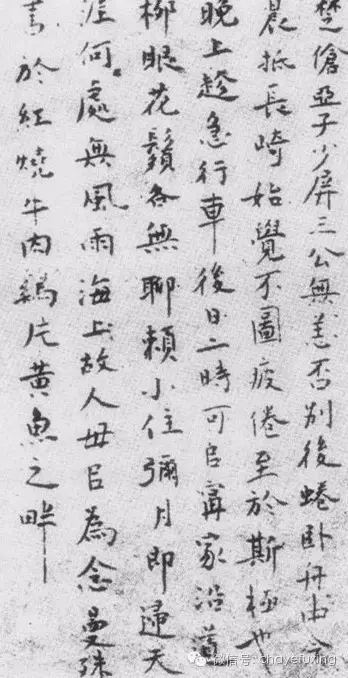 楚傖亞子少屏三公無恙否別後蜷臥舟中今
晨抵長崎始覺不圖疲倦至於斯極也
晚上趁急行車後日二時可㠯甯家沿道
柳眼花鬚各無聊賴小住彌月即還天
涯何處無風雨海上故人毋㠯為念曼殊
書於紅燒牛肉鷄片黃魚之畔
微信号: chayefuxing